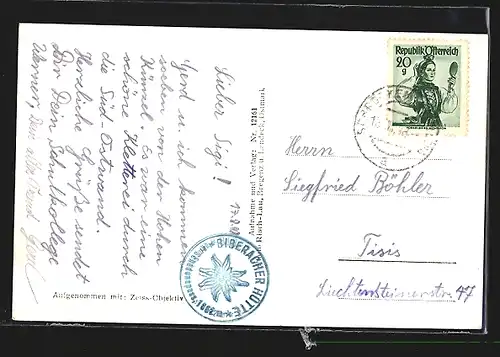 Lieber Sigi!
Gerd u. ich kommen
soeben von der Hohen
Künzel. Es war eine
schöne Kletterei durch
die Süd-Ostwand.
Herzliche Grüße sendet
Dir Dein Schulkollege
Werner, Dein alter Freund Gerd
Aufgenommen mit: Zeiss-Objektiv
Aufnahme und Verlag: Nr. 12161
Risch-Lau, Bregenz u. Landeck, Ostmark
BIBERACHER HÜTTE
Republik Österreich
20
g
Herrn
Siegfried Böhler
Tisis
Liechtensteinerstr. 47